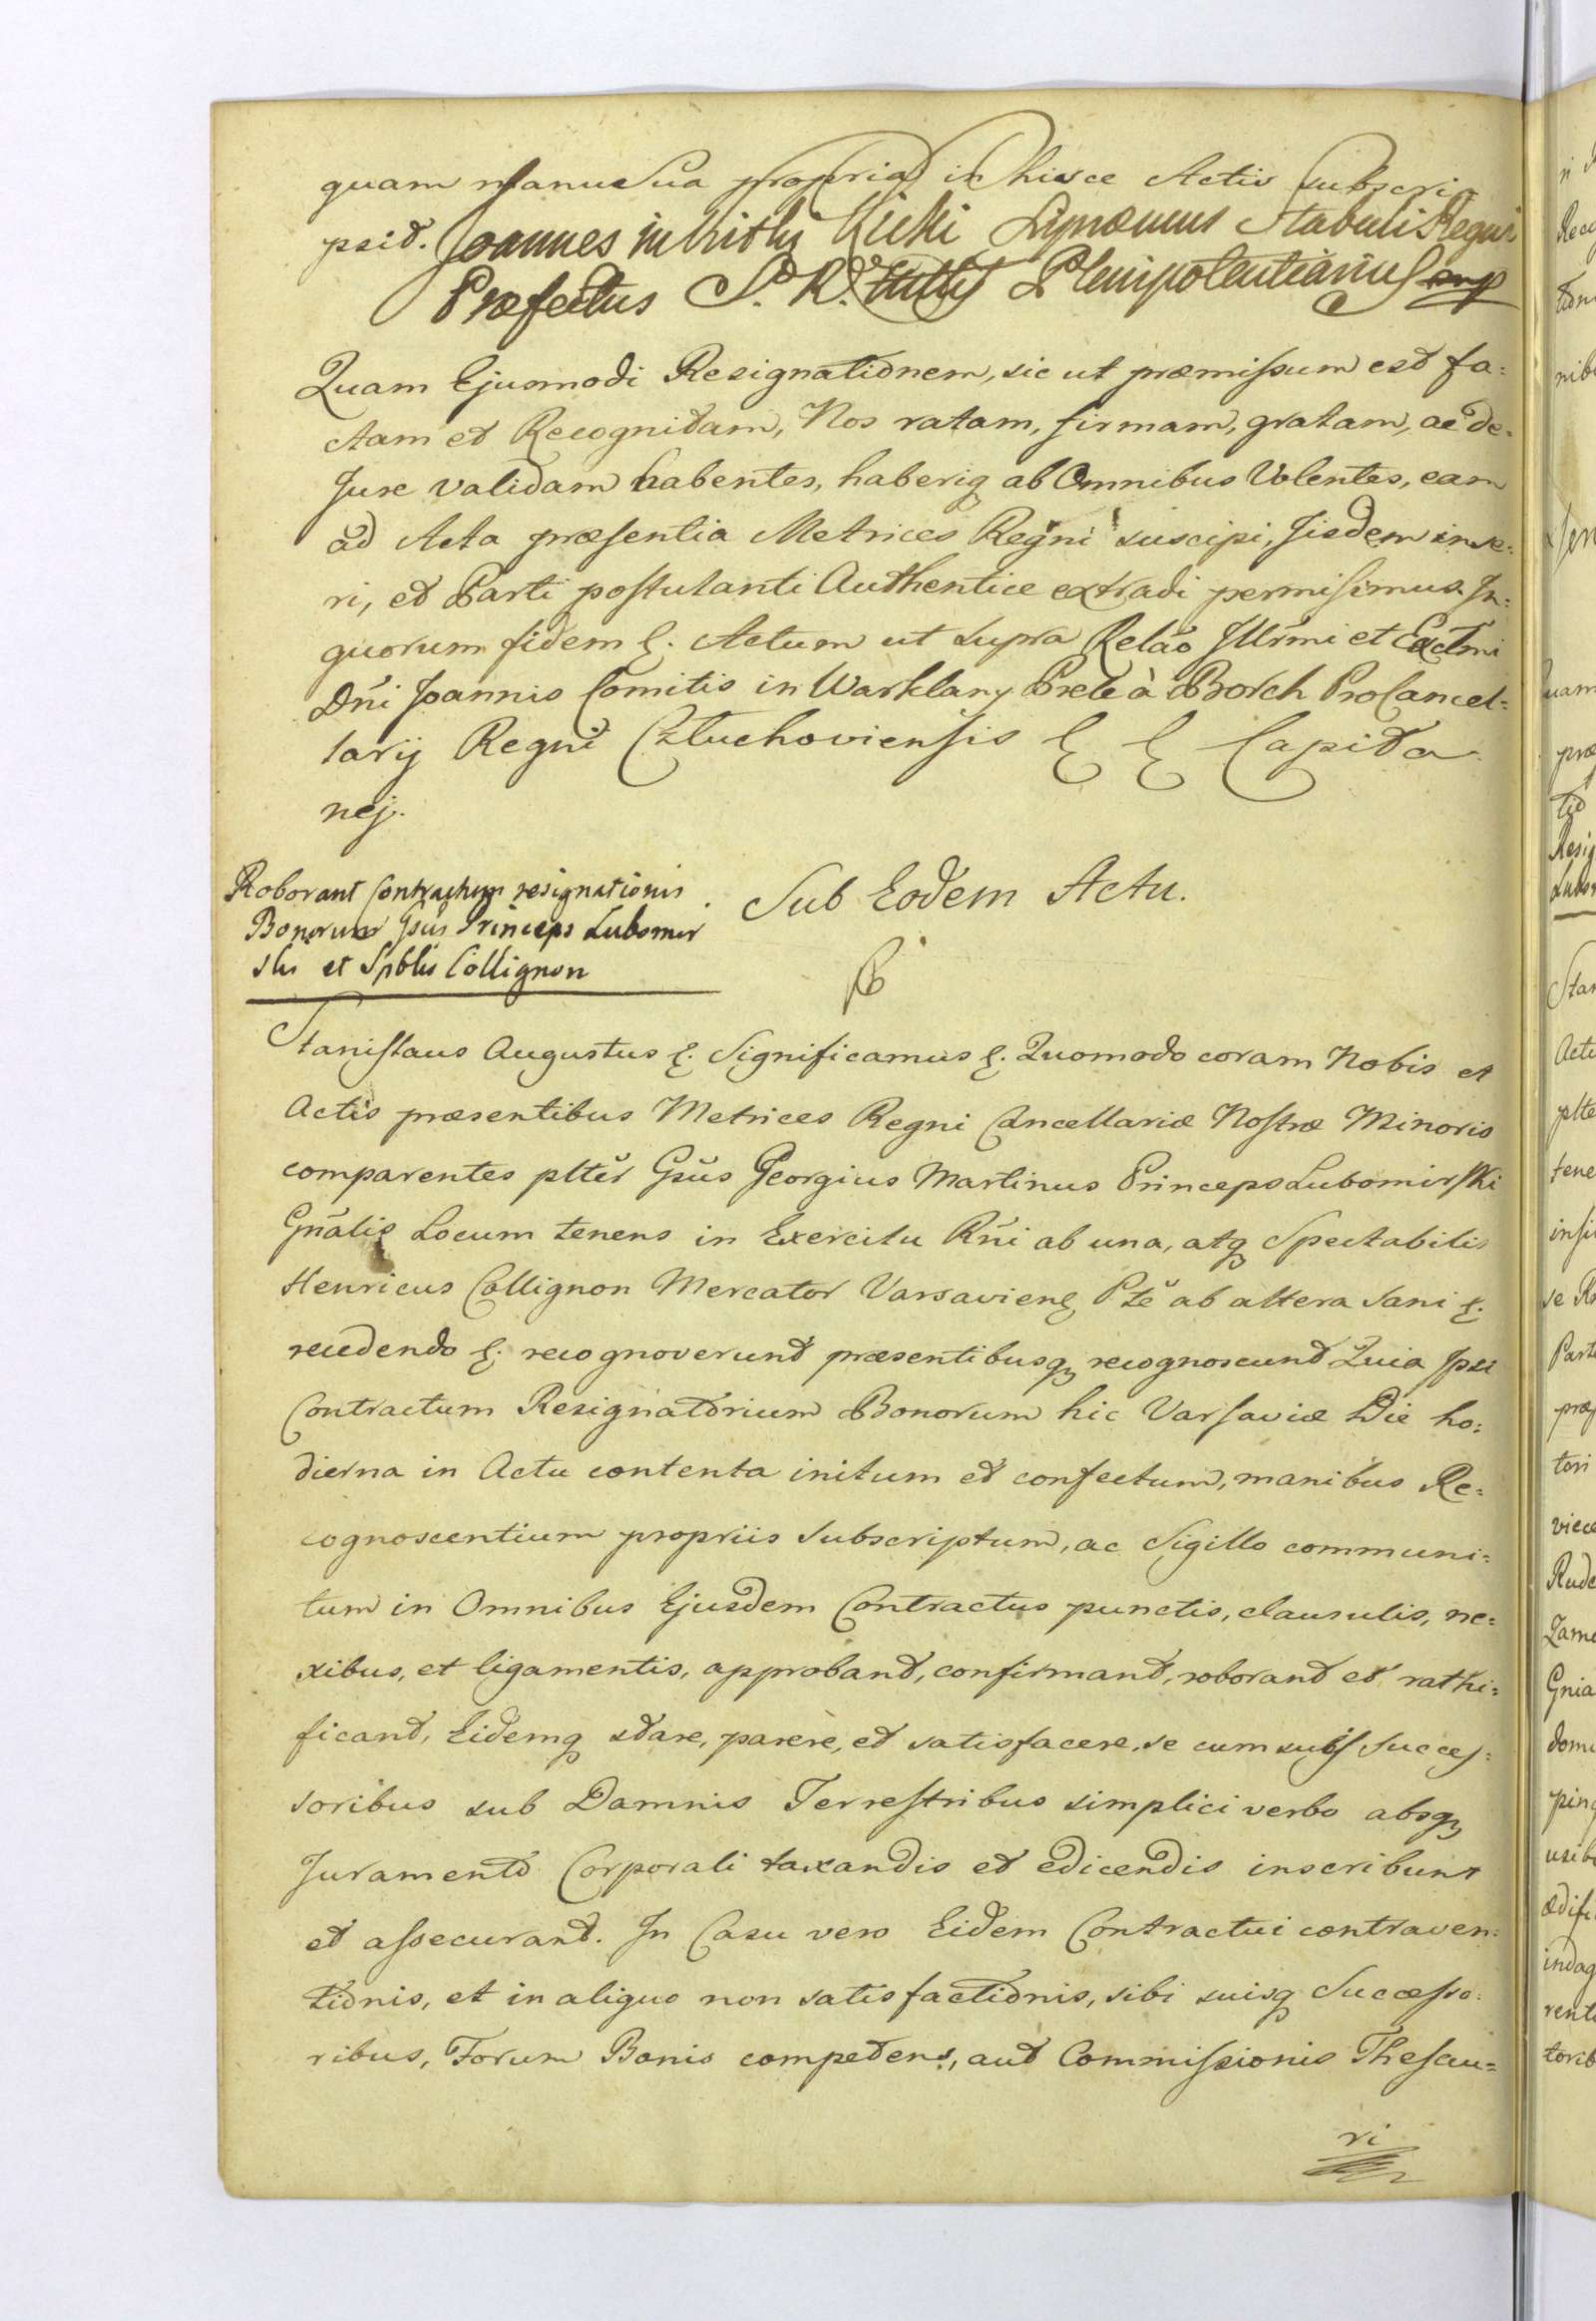 quam manu sua propria in hisce Actis subscri=
psit. Joannes in Kicki Supremus Stabuli Regni
Præfectus S. R. Plenipotentiarius mp
Quam Ejusmodi Resignationem, sic ut præmissum est fa=
ctam et Recognitam, Nos ratam, firmam, gratam, ac de
Jure validam habentes, haberiq ab Omnibus Volentes, eam
ad Acta præsentia Metrices Regni suscipi, Iisdem inse=
ri, et Parti postulanti Authentice extradi permisimus. In=
quorum fidem &. Actum ut supra Relao Illrmi et Excelmi
Dni Joannis Comitis in Warklany Prele à Borch ProCancel=
larij Regni Człuchoviensis & & Capita
nej.
Roborant Contractum resignationis
Bonorum Gsus Princeps Lubomir
ski et Spblis Collignon
Sub Eodem Actu.
Stanislaus Augustus &. Significamus &. Quomodo coram Nobis et
Actis præsentibus Metrices Regni Cancellariæ Nostræ Minoris
comparentes plter Gsus Georgius Martinus Princeps Lubomirski
Gnalis Locum tenens in Exercitu Rni ab una, atq Spectabilis
Henricus Collignon Mercator Varsaviens Pte ab altera Sani &.
recedendo &. recognoverunt præsentibusq recognoscunt Quia Ipsi
Contractum Resignatorium Bonorum hic Varsaviæ Die ho=
dierna in Actu contenta initum et confectum, manibus Re=
cognoscentium propriis subscriptum, ac Sigillo communi=
tum in Omnibus Ejusdem Contractus punctis, clausulis, ne=
xibus, et ligamentis, approbant, confirmant, roborant et rathi=
ficant, Eidemq stare, parere, et satisfacere, se cum suis Succes=
soribus sub Damnis Terrestribus simplici verbo absq
Juramento Corporali taxandis et edicendis inscribunt
et assecurant. In Casu vero Eidem Contractui contraven=
tionis, et in aliquo non satisfactionis, sibi suisq Successo=
ribus, Forum Bonis competens, aut Commissionis Thesau=
ri